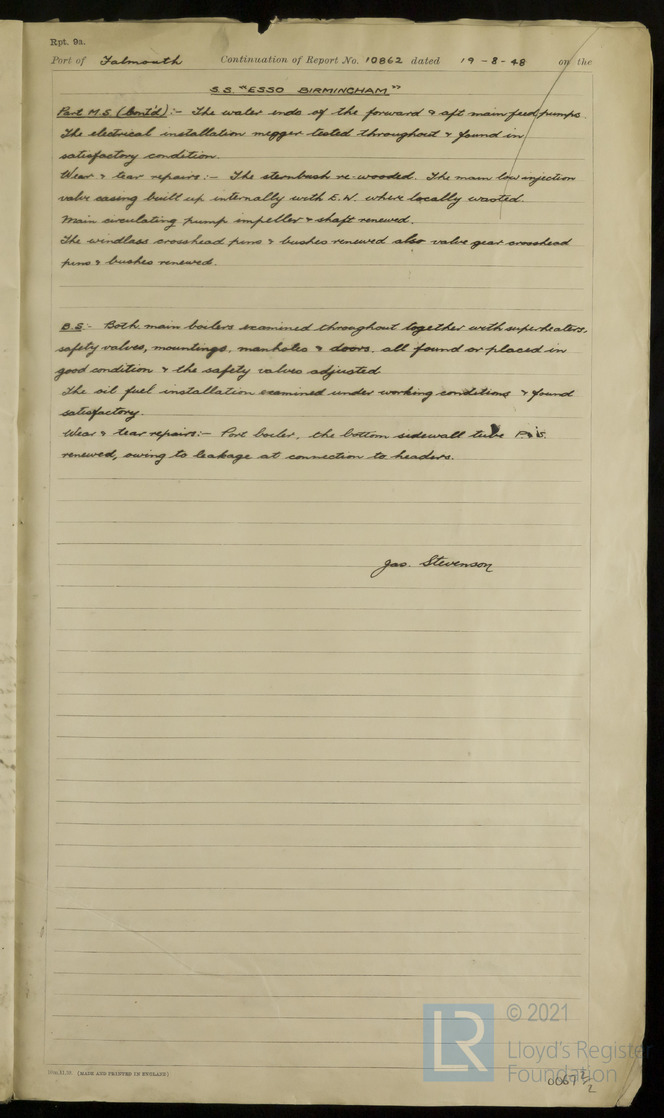 Rpt. 9a.
Port of Falmouth Continuation of Report No. 10862 dated 19-8-48 on the
S.S. "ESSO BIRMINGHAM"
Part M.S. (Contd):- The water ends of the forward & aft main feed pumps.
The electrical installation megger tested throughout & found in
satisfactory condition.
Wear & tear repairs:- The sternbush re-wooded. The main low injection
valve casing built up internally with E.W. where locally wasted.
Main circulating pump impeller & shaft renewed.
The windlass crosshead pins & bushes renewed also valve gear crosshead
pins & bushes renewed.
B.S:- Both main boilers examined throughout together with superheaters,
safety valves, mountings, manholes & doors, all found or placed in
good condition & the safety valves adjusted
The oil fuel installation examined under working conditions & found
satisfactory.
Wear & tear repairs:- Port boiler, the bottom sidewall tube P & S.
renewed, owing to leakage at connection to headers.
Jas. Stevenson
(MADE AND PRINTED IN ENGLAND)
LR © 2021
Lloyd's Register
Foundation
0067 2/2